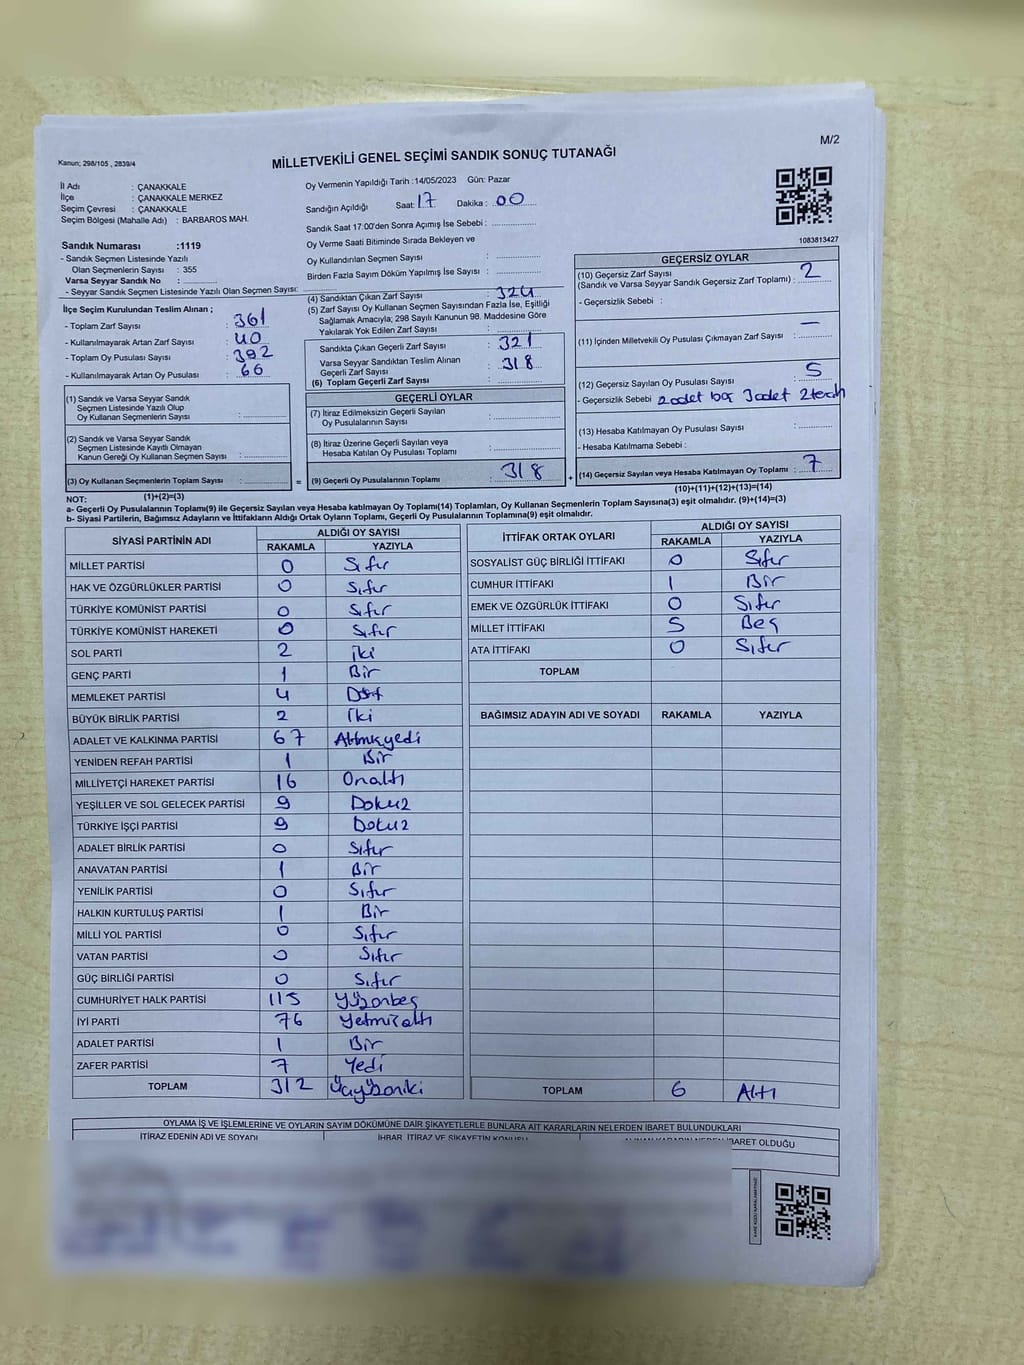 M/2
Kanun; 298/105 , 2839/4
MİLLETVEKİLİ GENEL SEÇİMİ SANDIK SONUÇ TUTANAĞI
İl Adı : ÇANAKKALE
İlçe : ÇANAKKALE MERKEZ
Seçim Çevresi : ÇANAKKALE
Seçim Bölgesi (Mahalle Adı) : BARBAROS MAH.
Sandık Numarası :1119
- Sandık Seçmen Listesinde Yazılı
Olan Seçmenlerin Sayısı : 355
Varsa Seyyar Sandık No :
- Seyyar Sandık Seçmen Listesinde Yazılı Olan Seçmen Sayısı:
İlçe Seçim Kurulundan Teslim Alınan ;
- Toplam Zarf Sayısı : 361
- Kullanılmayarak Artan Zarf Sayısı : 40
- Toplam Oy Pusulası Sayısı : 392
- Kullanılmayarak Artan Oy Pusulası : 66
(1) Sandık ve Varsa Seyyar Sandık
Seçmen Listesinde Yazılı Olup
Oy Kullanan Seçmenlerin Sayısı :
(2) Sandık ve Varsa Seyyar Sandık
Seçmen Listesinde Kayıtlı Olmayan
Kanun Gereği Oy Kullanan Seçmen Sayısı :
(3) Oy Kullanan Seçmenlerin Toplam Sayısı :
(1)+(2)=(3)
Oy Vermenin Yapıldığı Tarih :14/05/2023 Gün: Pazar
Sandığın Açıldığı Saat: 17 Dakika : 00
Sandık Saat 17:00'den Sonra Açımış İse Sebebi :
Oy Verme Saati Bitiminde Sırada Bekleyen ve
Oy Kullandırılan Seçmen Sayısı :
Birden Fazla Sayım Döküm Yapılmış İse Sayısı :
(4) Sandıktan Çıkan Zarf Sayısı : 324
(5) Zarf Sayısı Oy Kullanan Seçmen Sayısından Fazla İse, Eşitliği
Sağlamak Amacıyla; 298 Sayılı Kanunun 98. Maddesine Göre
Yakılarak Yok Edilen Zarf Sayısı :
Sandıkta Çıkan Geçerli Zarf Sayısı : 321
Varsa Seyyar Sandıktan Teslim Alınan
Geçerli Zarf Sayısı : 318
(6) Toplam Geçerli Zarf Sayısı :
GEÇERLİ OYLAR
(7) İtiraz Edilmeksizin Geçerli Sayılan
Oy Pusulalarının Sayısı :
(8) İtiraz Üzerine Geçerli Sayılan veya
Hesaba Katılan Oy Pusulası Toplamı :
= (9) Geçerli Oy Pusulalarının Toplamı : 318 +
1083813427
GEÇERSİZ OYLAR
(10) Geçersiz Zarf Sayısı
(Sandık ve Varsa Seyyar Sandık Geçersiz Zarf Toplamı) : 2
- Geçersizlik Sebebi :
(11) İçinden Milletvekili Oy Pusulası Çıkmayan Zarf Sayısı : —
(12) Geçersiz Sayılan Oy Pusulası Sayısı : 5
- Geçersizlik Sebebi : 2 adet boş 3 adet 2 tercih
(13) Hesaba Katılmayan Oy Pusulası Sayısı :
- Hesaba Katılmama Sebebi :
(14) Geçersiz Sayılan veya Hesaba Katılmayan Oy Toplamı : 7
(10)+(11)+(12)+(13)=(14)
NOT:
a- Geçerli Oy Pusulalarının Toplamı(9) ile Geçersiz Sayılan veya Hesaba katılmayan Oy Toplamı(14) Toplamları, Oy Kullanan Seçmenlerin Toplam Sayısına(3) eşit olmalıdır. (9)+(14)=(3)
b- Siyasi Partilerin, Bağımsız Adayların ve İttifakların Aldığı Ortak Oyların Toplamı, Geçerli Oy Pusulalarının Toplamına(9) eşit olmalıdır.
SİYASİ PARTİNİN ADI ALDIĞI OY SAYISI
RAKAMLA YAZIYLA
MİLLET PARTİSİ 0 Sıfır
HAK VE ÖZGÜRLÜKLER PARTİSİ 0 Sıfır
TÜRKİYE KOMÜNİST PARTİSİ 0 Sıfır
TÜRKİYE KOMÜNİST HAREKETİ 0 Sıfır
SOL PARTİ 2 İki
GENÇ PARTİ 1 Bir
MEMLEKET PARTİSİ 4 Dört
BÜYÜK BİRLİK PARTİSİ 2 İki
ADALET VE KALKINMA PARTİSİ 67 Altmışyedi
YENİDEN REFAH PARTİSİ 1 Bir
MİLLİYETÇİ HAREKET PARTİSİ 16 Onaltı
YEŞİLLER VE SOL GELECEK PARTİSİ 9 Dokuz
TÜRKİYE İŞÇİ PARTİSİ 9 Dokuz
ADALET BİRLİK PARTİSİ 0 Sıfır
ANAVATAN PARTİSİ 1 Bir
YENİLİK PARTİSİ 0 Sıfır
HALKIN KURTULUŞ PARTİSİ 1 Bir
MİLLİ YOL PARTİSİ 0 Sıfır
VATAN PARTİSİ 0 Sıfır
GÜÇ BİRLİĞİ PARTİSİ 0 Sıfır
CUMHURİYET HALK PARTİSİ 115 Yüzonbeş
İYİ PARTİ 76 Yetmişaltı
ADALET PARTİSİ 1 Bir
ZAFER PARTİSİ 7 Yedi
TOPLAM 312 Üçyüzoniki
İTTİFAK ORTAK OYLARI ALDIĞI OY SAYISI
RAKAMLA YAZIYLA
SOSYALİST GÜÇ BİRLİĞİ İTTİFAKI 0 Sıfır
CUMHUR İTTİFAKI 1 Bir
EMEK VE ÖZGÜRLÜK İTTİFAKI 0 Sıfır
MİLLET İTTİFAKI 5 Beş
ATA İTTİFAKI 0 Sıfır
TOPLAM
BAĞIMSIZ ADAYIN ADI VE SOYADI RAKAMLA YAZIYLA
TOPLAM 6 Altı
OYLAMA İŞ VE İŞLEMLERİNE VE OYLARIN SAYIM DÖKÜMÜNE DAİR ŞİKAYETLERLE BUNLARA AİT KARARLARIN NELERDEN İBARET BULUNDUKLARI
İTİRAZ EDENİN ADI VE SOYADI İHBAR, İTİRAZ VE ŞİKAYETİN KONUSU ALINAN KARARIN NEDEN İBARET OLDUĞU